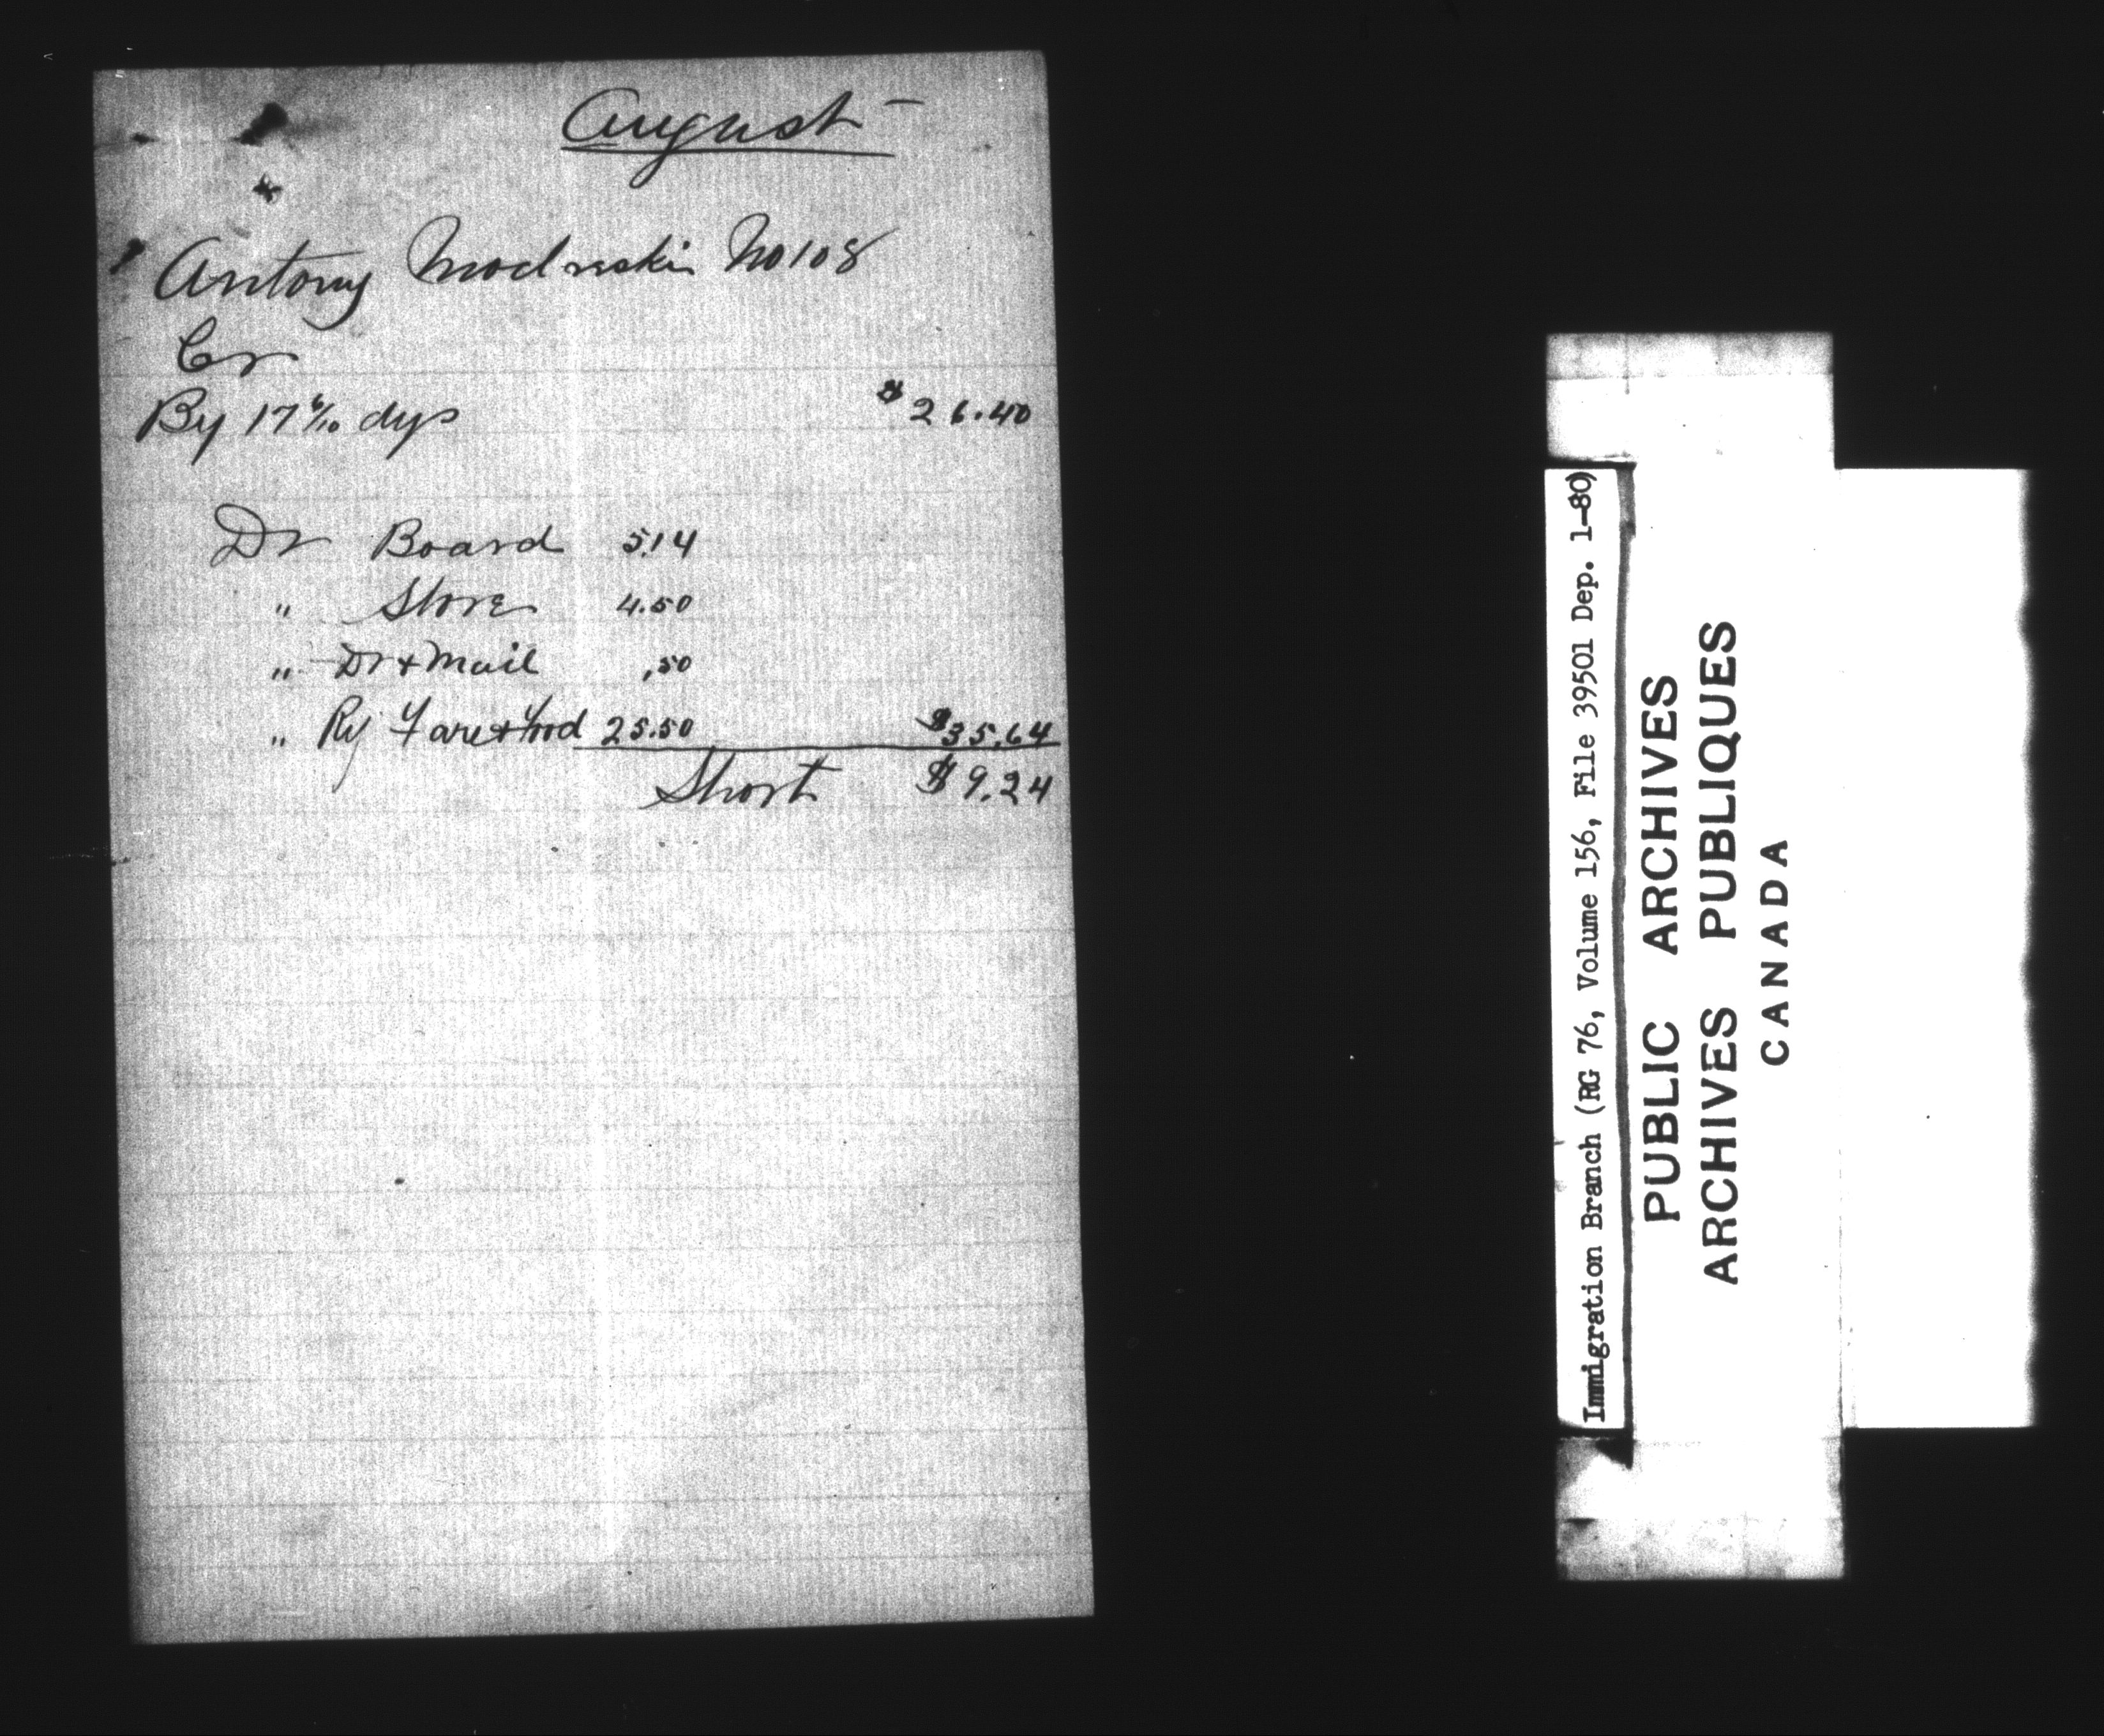 August -
Antony Modreskie No 108
Cr
By 17 6/10 dys $26.40
Dr Board 5.14
" Store 4.50
" Dr + Mail .50
" Ry Fare & food 25.50 $35.64
Short $9.24
Immigration Branch (RG 76, Volume 156, File 39501 Dep. 1-80)
PUBLIC ARCHIVES
ARCHIVES PUBLIQUES
CANADA